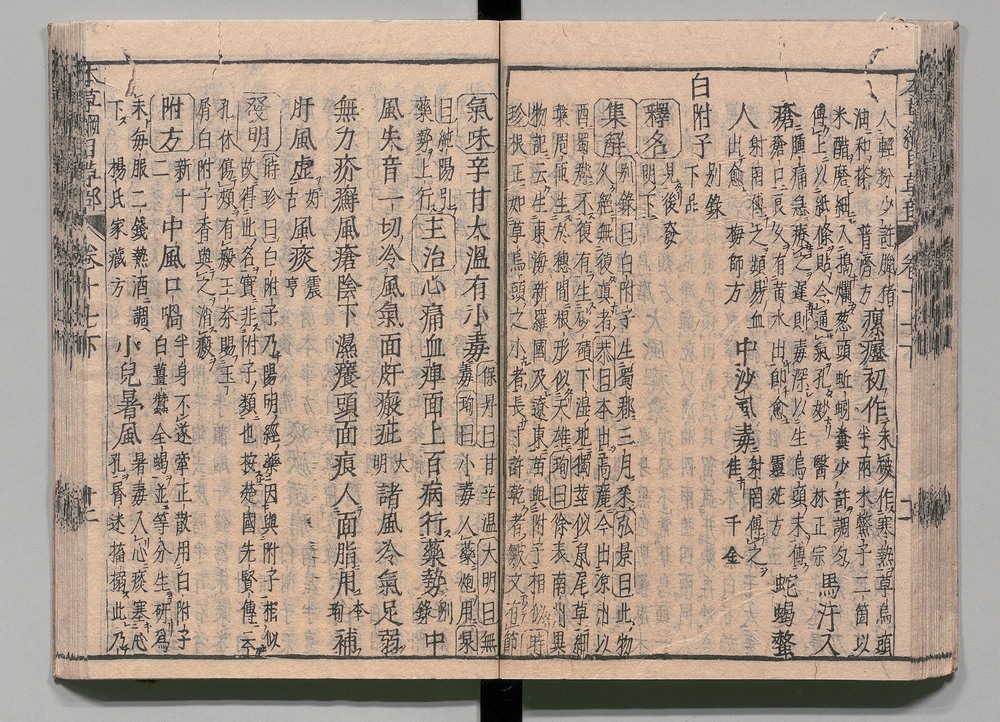 人輕粉少許臘猪
油和搽 普濟方 瘰癧初作 未破作寒熱草烏頭
米醋磨細入搗爛葱頭蚯蚓糞少許調勻
傅上以紙條貼令通氣孔妙 醫林正宗 馬汗入
瘡腫痛急療之遲則毒深以生烏頭末傅
瘡口良久有黃水出即愈 靈苑方 蛇蝎螫
人 射罔傅之頻易血出愈 梅師方 中沙虱毒 射罔傅之佳 千金
白附子 別錄下品
釋名 見後發明下
集解 別錄曰白附子生蜀郡三月采弘景曰此物
久絕無復真者恭曰本出高麗今出涼州以
西蜀郡不復有生砂磧下濕地獨莖似鼠尾草細
葉周匝生於穗間根形似天雄珣曰徐表南州異
物記云生東海新羅國及遼東苗與附子相似時
珍曰根正如草烏頭之小者長寸許乾者皺文有節
氣味 辛甘大溫有小毒 保昇曰甘辛溫大明曰無毒珣曰小毒入藥炮用杲
曰純陽引藥勢上行 主治 心痛血痺面上百病行藥勢 別錄 中
風失音一切冷風氣面皯瘢疵 大明 諸風冷氣足弱
無力疥癬風瘡陰下濕癢頭面痕入面脂用 李珣 補
肝風虛 好古 風痰 震亨
發明 時珍曰白附子乃陽明經藥因與附子相似
故得此名實非附子類也按楚國先賢傳云
孔休傷頰有瘢王莽賜玉
屑白附子香與之消瘢
附方 新十二 中風口喎 半身不遂牽正散用白附子
白薑蠶全蝎並等分生研爲
末每服二錢熱酒調
下 楊氏家藏方 小兒暑風 暑毒入心痰塞心
孔昏迷搐搦此乃